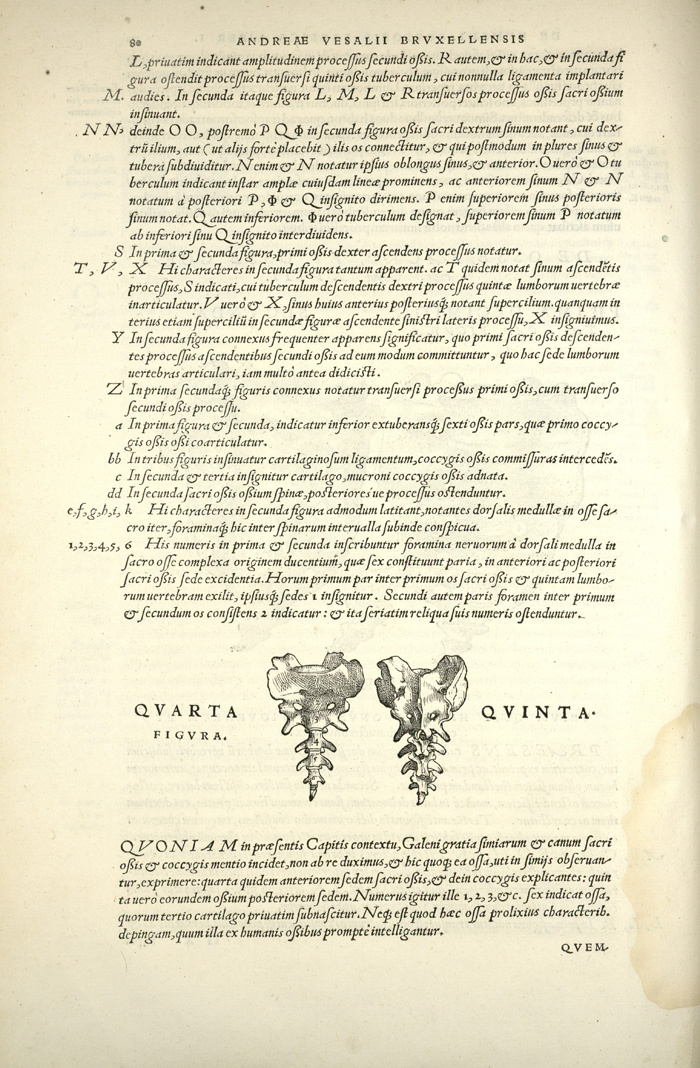 80 ANDREAE VESALII BRVXELLENSIS
L, priuatim indicant amplitudinem processus secundi ossis. R autem, & in hac, & in secunda fi
gura ostendit processus transuersi quinti ossis tuberculum, cui nonnulla ligamenta implantari
M. audies. In secunda itaque figura L, M, L & R transuersos processus ossis sacri ossium
insinuant.
NN; deinde OO, postremò P Q Φ in secunda figura ossis sacri dextrum sinum notant, cui dex-
trũ ilium, aut (ut alijs fortè placebit) ilis os connectitur, & qui postmodum in plures sinus &
tubera subdiuiditur. N enim & N notatur ipsius oblongus sinus, & anterior. O uerò & O tu
berculum indicant instar amplæ cuiusdam lineæ prominens, ac anteriorem sinum N & N
notatum à posteriori P, Φ & Q insignito dirimens. P enim superiorem sinus posterioris
sinum notat. Q autem inferiorem. Φ uerò tuberculum designat, superiorem sinum P notatum
ab inferiori sinu Q insignito interdiuidens.
S In prima & secunda figura, primi ossis dexter ascendens processus notatur.
T, V, X Hi characteres in secunda figura tantum apparent. ac T quidem notat sinum ascendẽtis
processus, S indicati, cui tuberculum descendentis dextri processus quintæ lumborum uertebræ
inarticulatur. V uerò & X, sinus huius anterius posteriusq́; notant supercilium. quanquam in
terius etiam superciliũ in secundæ figuræ ascendente sinistri lateris processu, X insigniuimus.
Y In secunda figura connexus frequenter apparens significatur, quo primi sacri ossis descenden-
tes processus ascendentibus secundi ossis ad eum modum committuntur, quo hac sede lumborum
uertebras articulari, iam multò antea didicisti.
Z In prima secundaq́; figuris connexus notatur transuersi processus primi ossis, cum transuerso
secundi ossis processu.
a In prima figura & secunda, indicatur inferior extuberansq́; sexti ossis pars, quæ primo coccy-
gis ossis ossi coarticulatur.
bb In tribus figuris insinuatur cartilaginosum ligamentum, coccygis ossis commissuras intercedẽs.
c In secunda & tertia insignitur cartilago, mucroni coccygis ossis adnata.
dd In secunda sacri ossis ossium spinæ, posteriores'ue processus ostenduntur.
e,f,g,h,i, k Hi characteres in secunda figura admodum latitant, notantes dorsalis medullæ in osse sa-
cro iter, foraminaq́; hic inter spinarum interualla subinde conspicua.
1,2,3,4,5, 6 His numeris in prima & secunda inscribuntur foramina neruorum à dorsali medulla in
sacro osse complexa originem ducentium, quæ sex constituunt paria, in anteriori ac posteriori
sacri ossis sede excidentia. Horum primum par inter primum os sacri ossis & quintam lumbo-
rum uertebram exilit, ipsiusq́; sedes 1 insignitur. Secundi autem paris foramen inter primum
& secundum os consistens 2 indicatur: & ita seriatim reliqua suis numeris ostenduntur.
QVARTA
FIGVRA.
QVINTA.
QVONIAM in præsentis Capitis contextu, Galeni gratia simiarum & canum sacri
ossis & coccygis mentio incidet, non ab re duximus, & hic quoq; ea ossa, uti in simijs obseruan-
tur, exprimere: quarta quidem anteriorem sedem sacri ossis, & dein coccygis explicantes: quin
ta uerò eorundem ossium posteriorem sedem. Numerus igitur ille 1, 2, 3, &c. sex indicat ossa,
quorum tertio cartilago priuatim subnascitur. Neq; est quod hæc ossa prolixius characterib.
depingam, quum illa ex humanis ossibus promptè intelligantur.
QVEM-